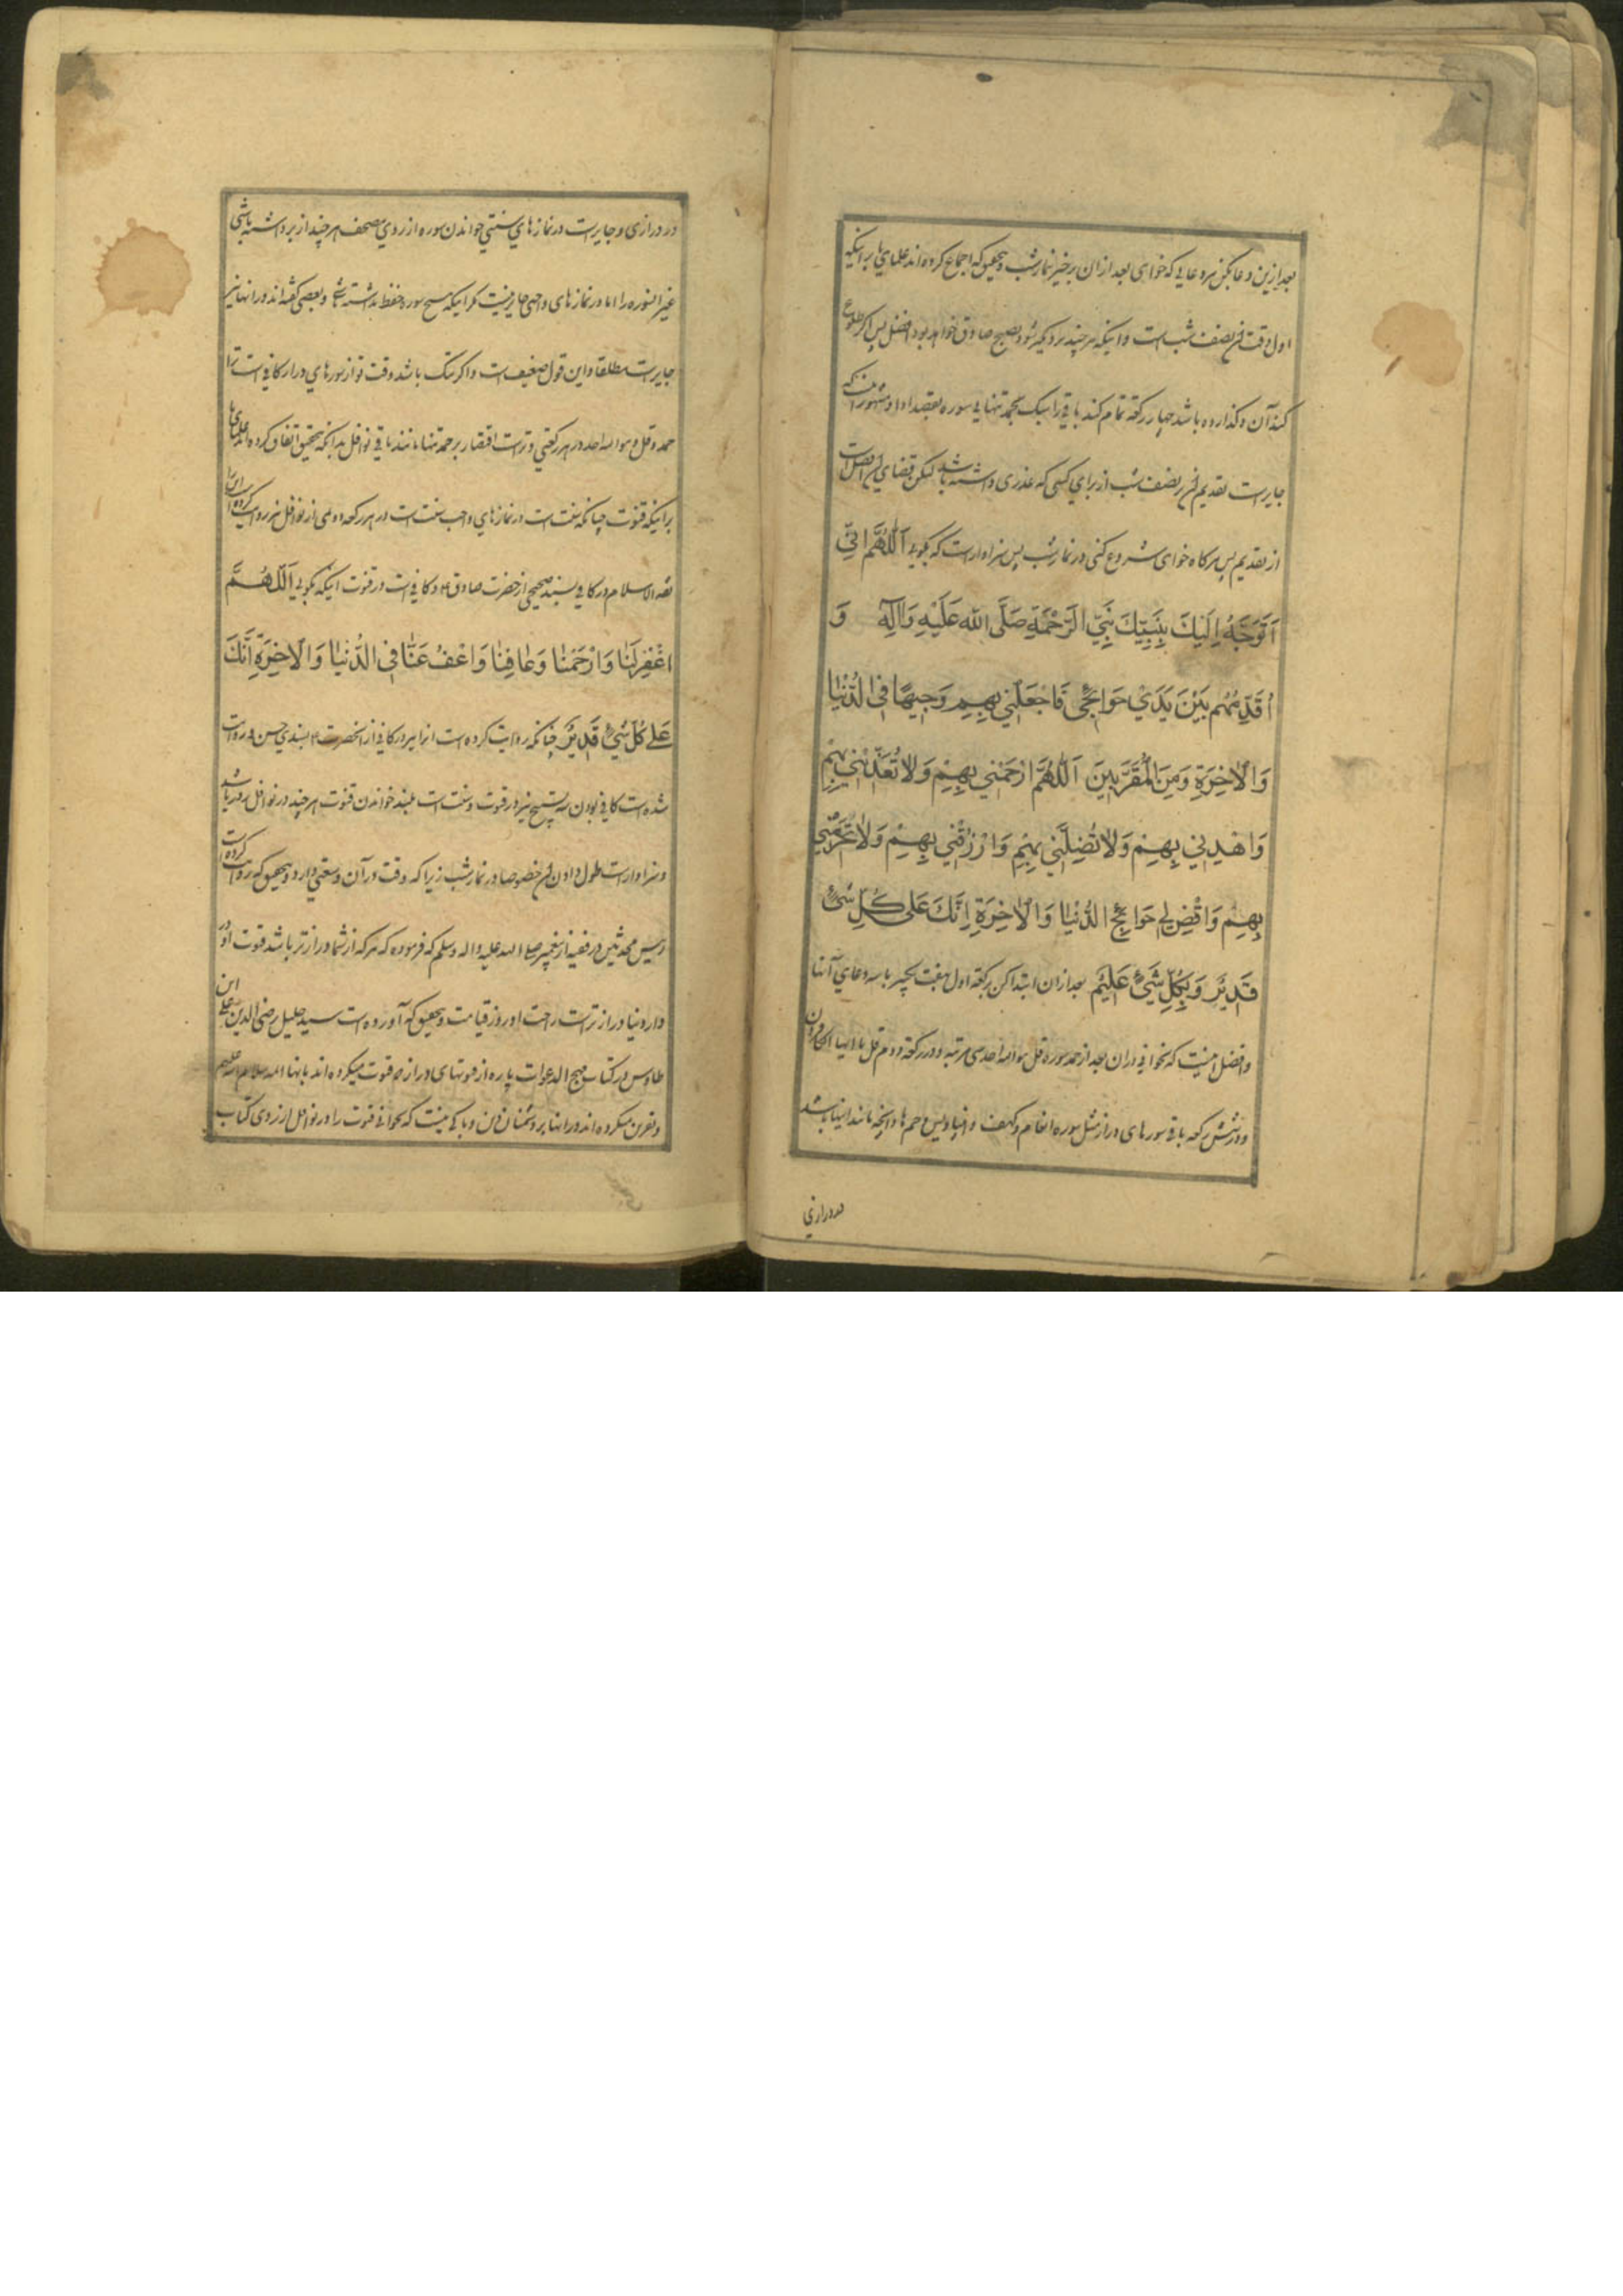 بعد ازین دعا بکن هر دعایی که خواهی بعد از ان برخیز بنماز شب و بتحقیق که اجماع کرده اند علمای ما بر اینکه
اول وقت آن نصف شب است و اینکه هر چند نزدیکتر شود بصبح صادق خواهد بود افضل پس اگر طلوع
کند آن و گذارده باشد چهار رکعت تمام کند باقی را سبک بحمد تنها بی سوره بقصد ادا و مشهور آنست که
جایز است تقدیم آن بر نصف شب از برای کسی که عذری داشته باشد لیکن قضای آن افضل است
از تقدیم پس هر کاه خواهی شروع کنی در نماز شب پس سزاوار است که بکویی اَللّهُمَّ اِنّی
اَتَوَجَّهُ اِلَیْکَ بِنَبِیِّکَ نَبِیِّ الرَّحْمَةِ صَلَّی اللّه عَلَیْهِ وَآلِهِ وَ
اُقَدِّمُهُم بَیْنَ یَدَیْ حَوَائِجی فَاجْعَلْنِی بِهِم وَجِیهًا فِی الدُّنْیَا
وَالْاٰخِرَةِ وَمِنَ الْمُقَرَّبِینَ اَللّهُمَّ ارْحَمْنِی بِهِمْ وَلَا تُعَذِّبْنِی بِهِمْ
وَاهْدِنِی بِهِمْ وَلَا تُضِلَّنِی بِهِمْ وَارْزُقْنِی بِهِمْ وَلَا تَحْرِمْنِی
بِهِمْ وَاقْضِ لِی حَوَائِجَ الدُّنْیَا وَالْاٰخِرَةِ اِنَّکَ عَلَی کُلِّ شَیْءٍ
قَدِیرٌ وَبِکُلِّ شَیْءٍ عَلِیم بعد ازان ابتدا کن رکعت اول بهفت تکبیر با سه دعای آنها
و افضل اینست که بخوانی دران بعد از حمد سوره قل هو الله احد سی مرتبه و در رکعت دوم قل یا ایها الکافرون
و در شش رکعه باقی سورهای دراز مثل سوره انعام و کهف و انبیا و یس و حم ها و آنچه مانند اینها باشد
در درازی
در درازی و جایز است در نماز های سنتی خواندن سوره از روی مصحف هر چند از بر داشته باشی
غیر انسوره را اما در نماز های واجبی جایز نیست مکر اینکه هیچ سوره حفظ نداشته باشی و بعضی کفته اند در انها نیز
جایز است مطلقا و این قول ضعیف است و اکر تنک باشد وقت تو از سورهای دراز کافی است ترا
حمد و قل هو الله احد در هر رکعتی و تراست اقتصار بر حمد تنها مانند باقی نوافل بدانکه بتحقیق اتفاق کرده اند علمای ما
بر اینکه قنوت چنانکه سنت است در نمازهای واجب سنت است در هر رکعه دومی از نوافل نیز روایت کرده است
ثقه الاسلام در کافی بسند صحیحی از حضرت صادق ع که کافی است در قنوت اینکه بکویی اَللّهُمَّ
اغْفِرْلَنَا وَارْحَمْنَا وَعَافِنَا وَاعْفُ عَنَّا فِی الدُّنْیَا وَالْاٰخِرَةِ اِنَّکَ
عَلٰی کُلِّ شَیْءٍ قَدِیرٌ چنانکه روایت کرده است انرا نیز در کافی از انحضرت ع بسندی حسن و روایت
شده است کافی بودن سه تسبیح نیز در قنوت و سنت است بلند خواندن قنوت هر چند در نوافل روز باشد
و سزاوار است طول دادن آن خصوصا در نماز شب زیرا که وقت در آن وسعتی دارد و بتحقیق که روایت کرده است
رئیس محدثین در فقیه از پیغمبر صلی الله علیه واله وسلم که فرموده که هر که از شما دراز تر باشد قنوت او در
دار دنیا دراز تر است راحت او روز قیامت و بتحقیق که آورده است سید جلیل رضی الدین علی ابن
طاوس در کتاب مهج الدعوات پاره از قنوتهای دراز که قنوت میکرده اند بانها ائمه سلام الله علیهم
و نفرین میکرده اند در انها بر دشمنان دین و باکی نیست که بخوانی قنوت را در نوافل از روی کتاب